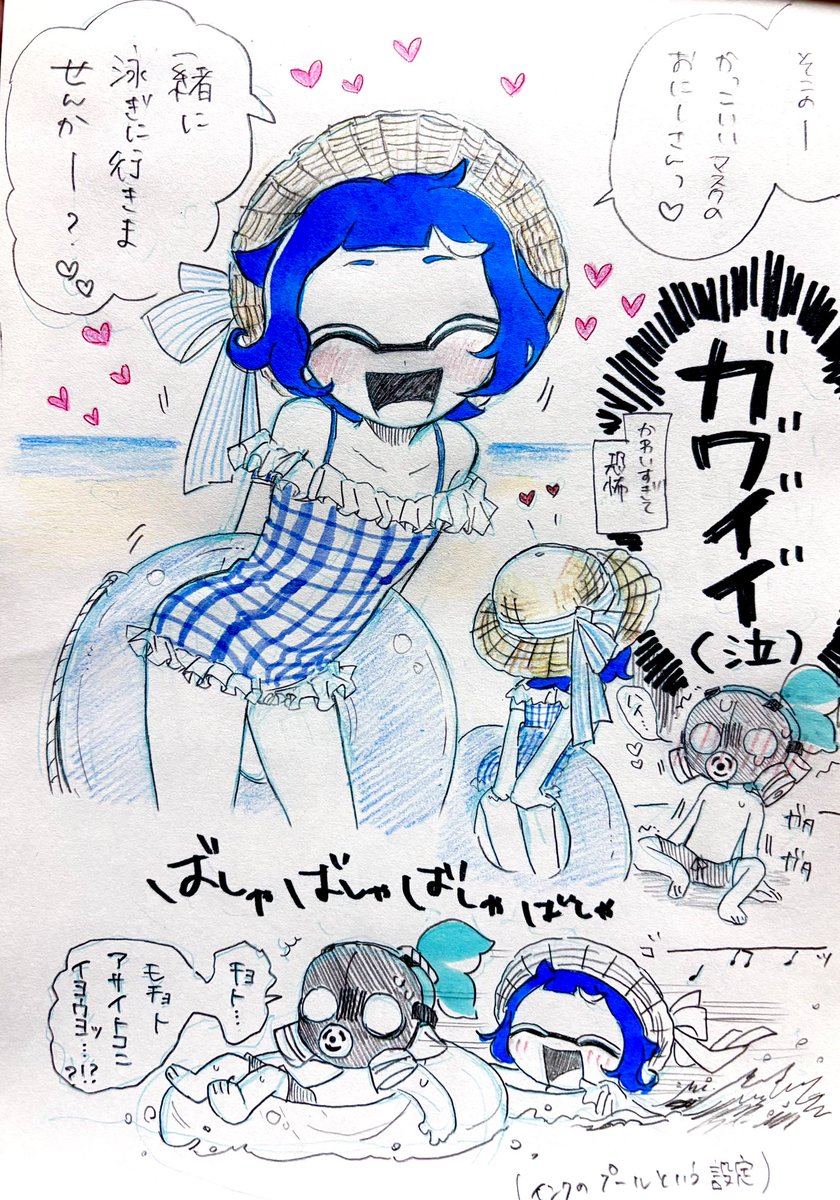 そこのー
かっこいいマスクの
おにーさんっ♡
一緒に
泳ぎに行きま
せんかー?♡♡
ガワイイ
(泣)
かわいすぎて
恐怖
ハイ…
♡♡
ガタ
ガタ
ばしゃばしゃばしゃばしゃ
チョト…
モチョト
アサイトコニ
イヨウヨッ…
?!?
ゴ
ッ
(インクのプールという設定)